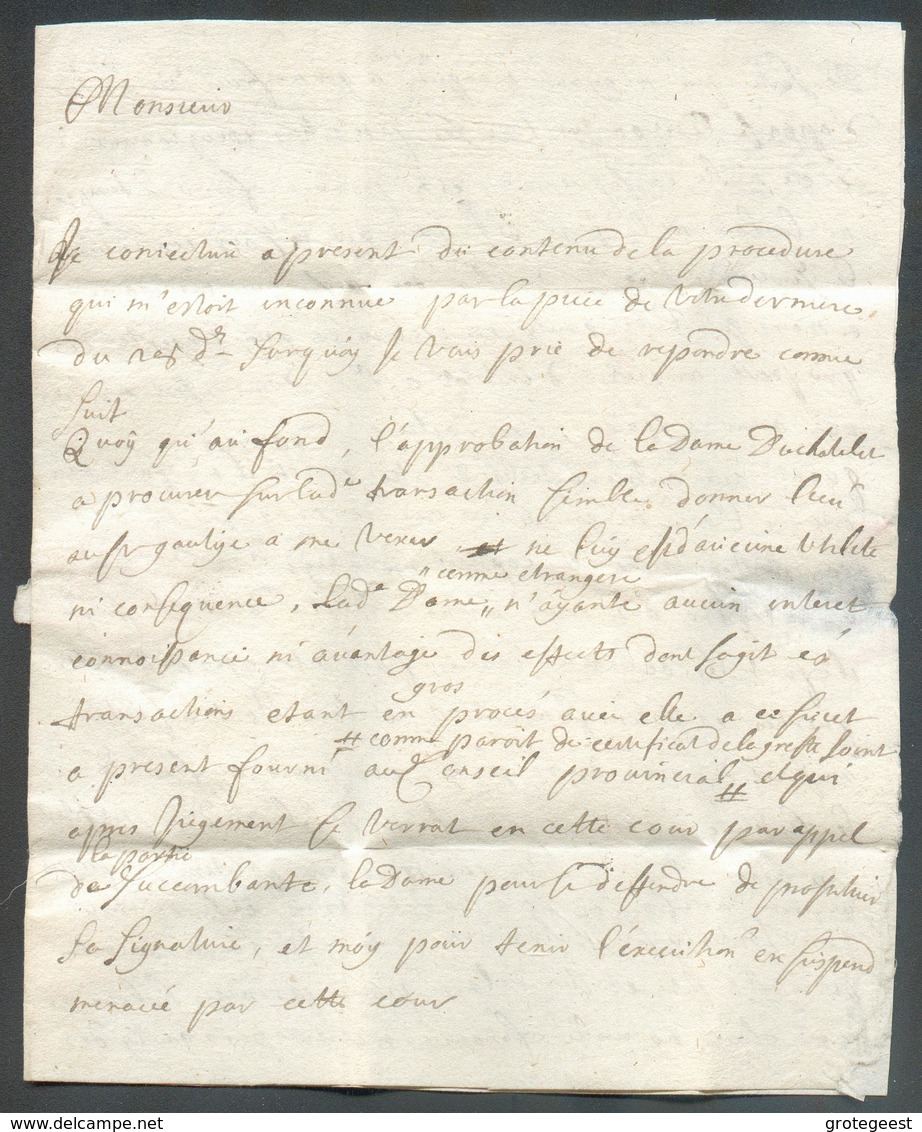 Monsieur
Je coniecture a present du contenu de la procedure
qui m'estoit inconnue par la piece de
du 205 dr surquoy Je vais prie de repondre comme
suit
Quoÿ qu'au fond, l'approbation de la Dame Duchatelet
a procurer sur lade transaction semble donner lieu
au Sr a me ne luy est d'aucune utilité
"comme etrangere
ni consequence, lade Dame " n'aÿante aucun interet
connoissance ni avantage des effects dont sagit es
gros
transactions etant en procés avec elle a ce sujet
# comme paroit du certificat de la greffe joint
a present fourni au Conseil provincial # et qui
apres Jugement se verrat en cette cour par appel
la partie
de succombante, la Dame pour se deffendre de
sa signature, et moÿ pour tenir l'execution en suspend
menacée par cette cour
delcampe.net
grotegeest